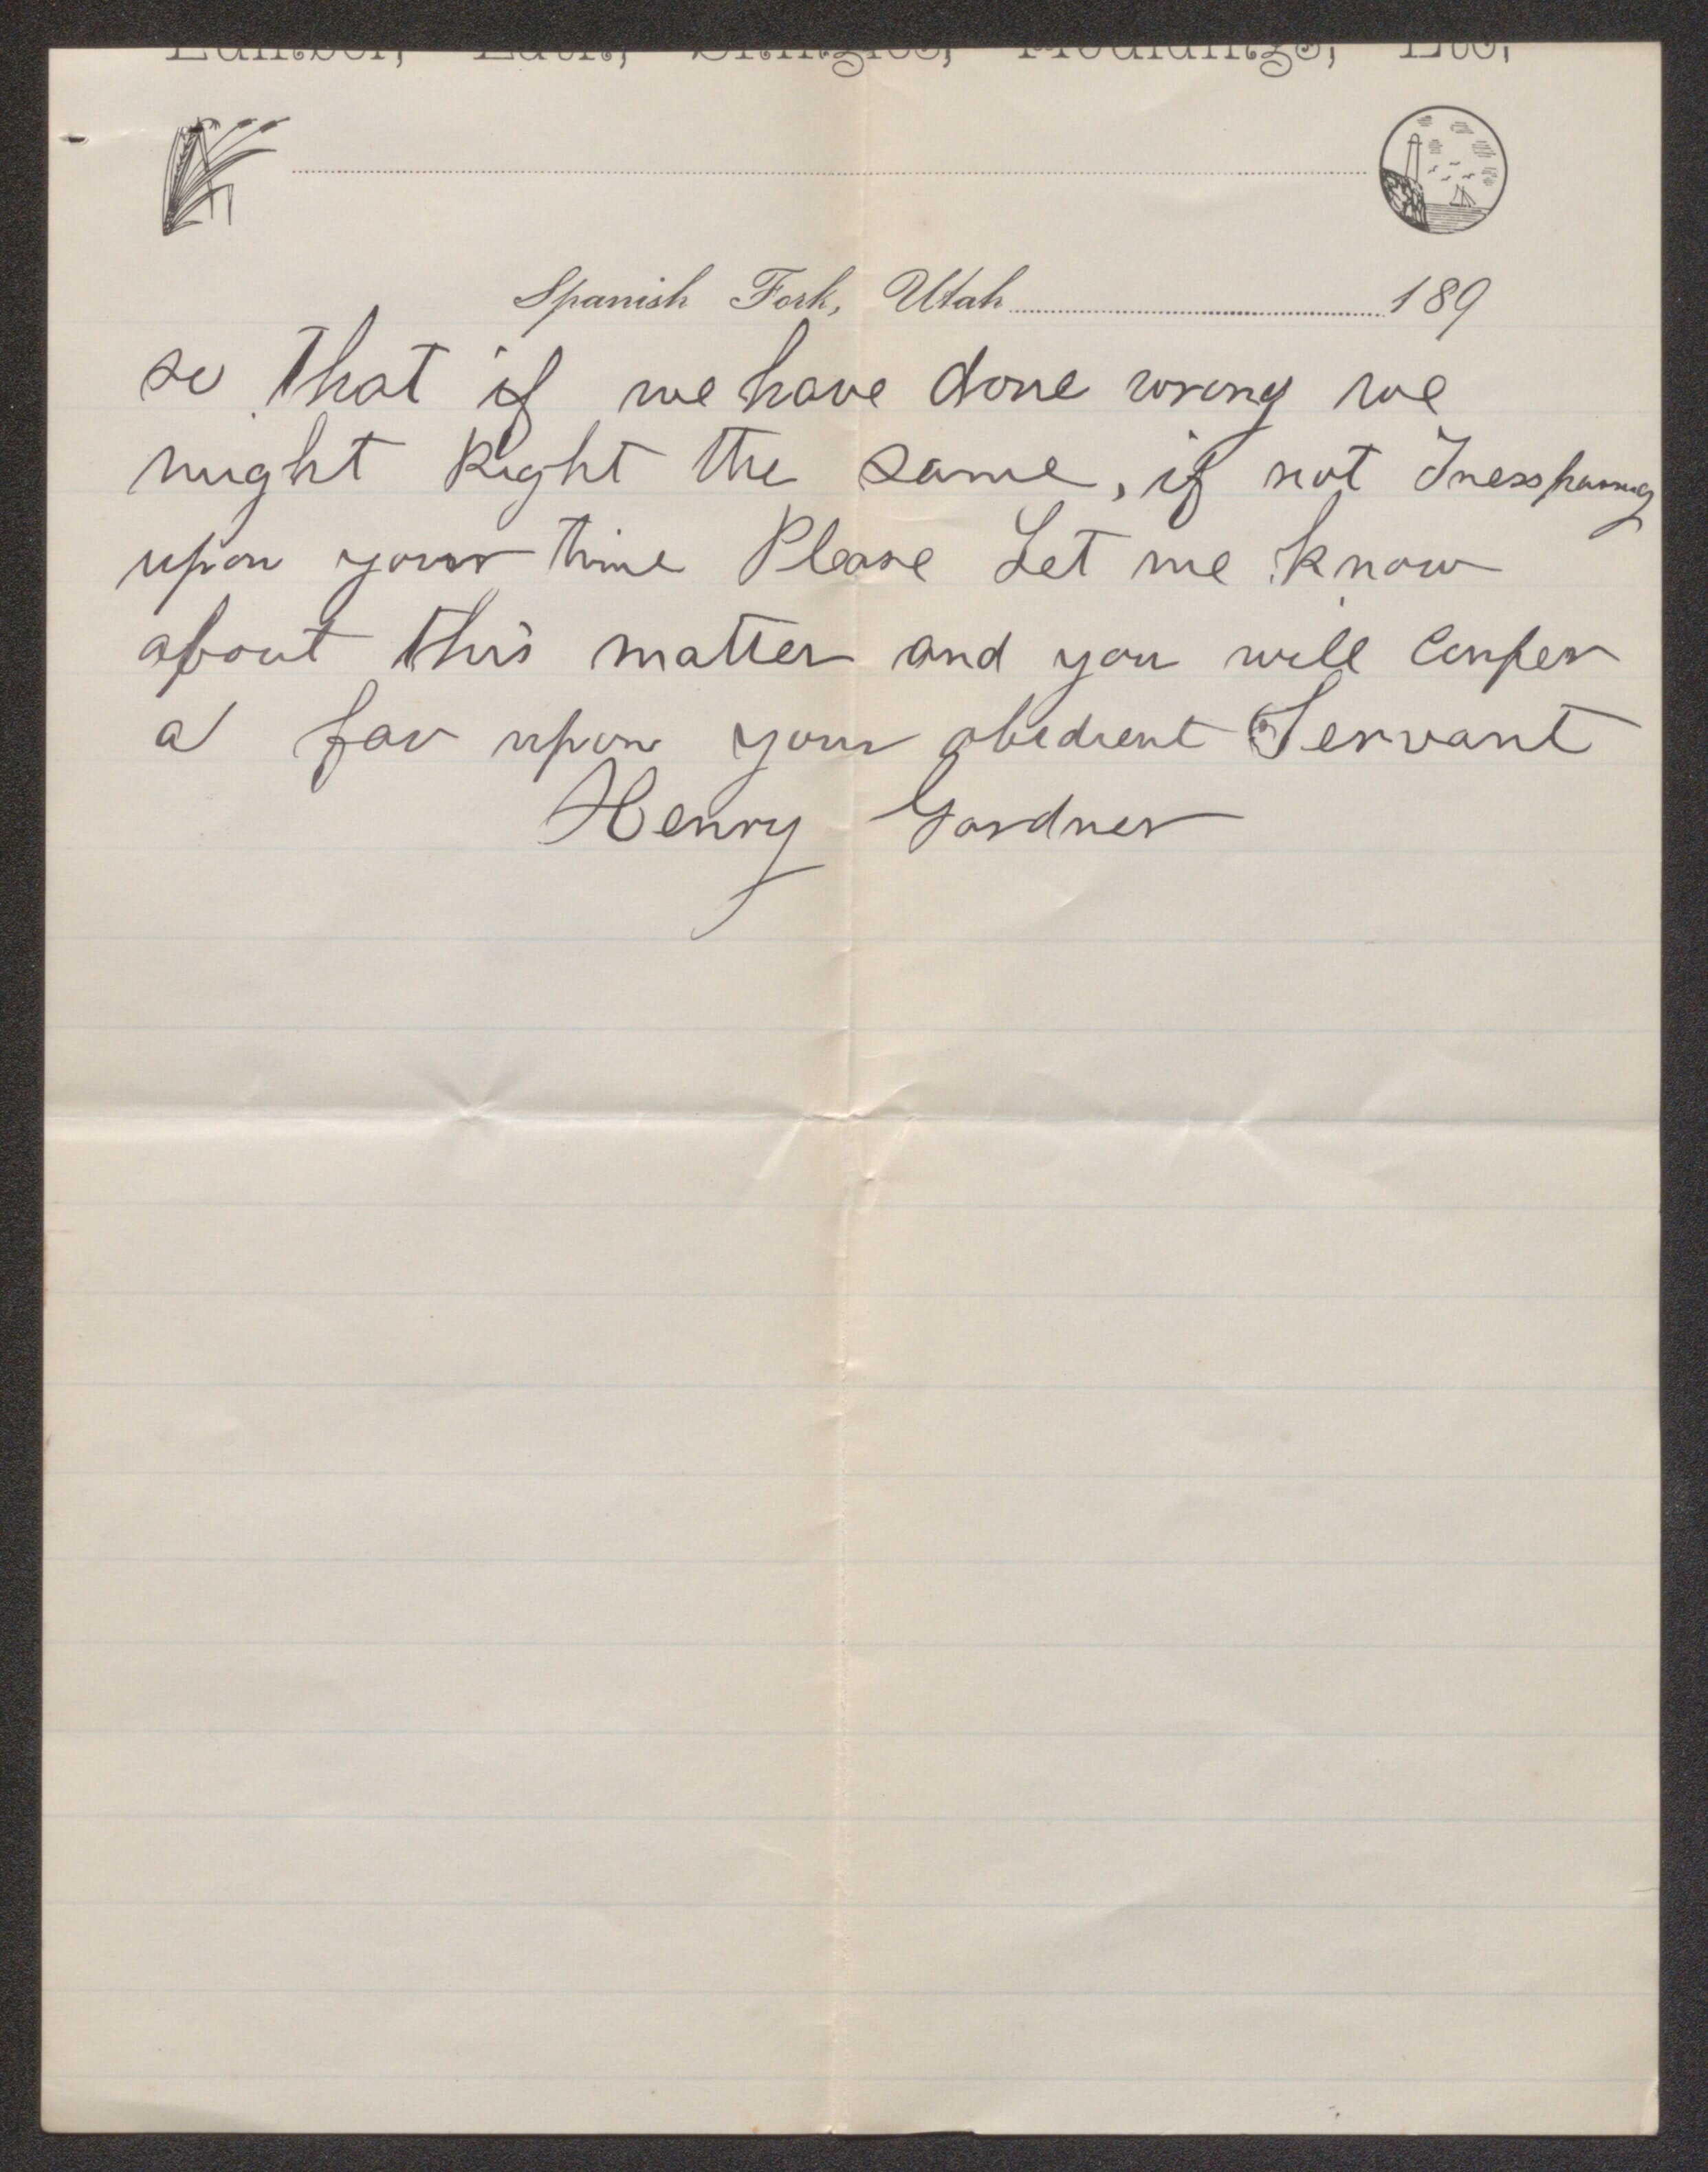 Lumber, Lath, Shingles, Mouldings, Etc,
Spanish Fork, Utah 189
so that if we have done wrong we
might Right the same, if not Tresspasing
upon your time Please Let me know
about this matter and you will confer
a fav upon your obedient Servant
Henry Gardner